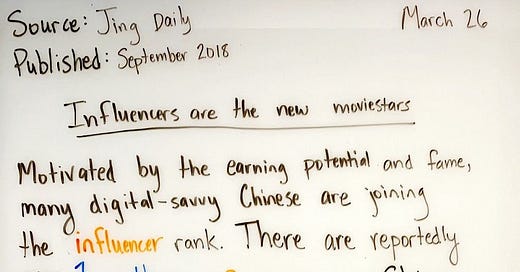 Source: Jing Daily
March 26
Published: September 2018
Influencers are the new moviestars
Motivated by the earning potential and fame,
many digital-savvy Chinese are joining
the influencer rank. There are reportedly